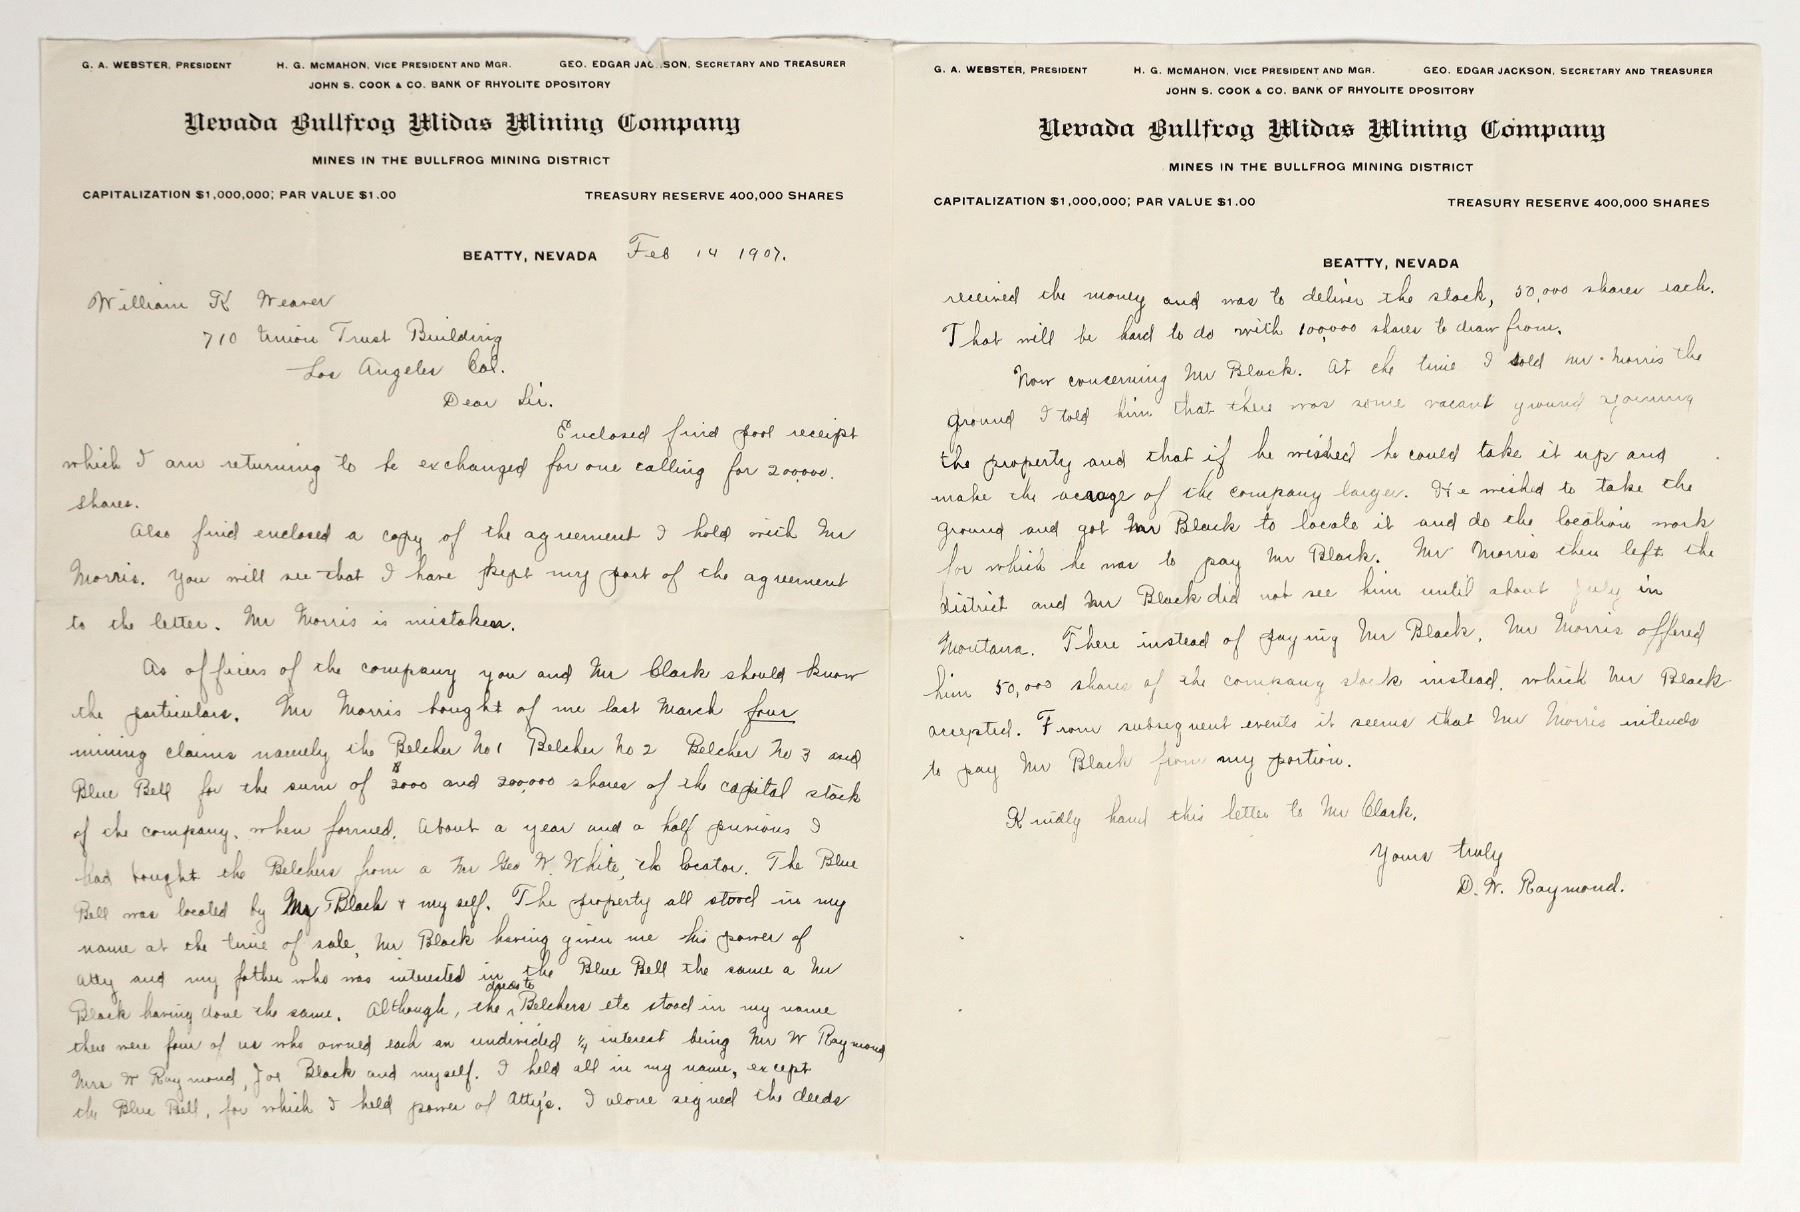 G. A. WEBSTER, PRESIDENT H. G. McMAHON, VICE PRESIDENT AND MGR. GEO. EDGAR JACKSON, SECRETARY AND TREASURER
JOHN S. COOK & CO. BANK OF RHYOLITE DPOSITORY
Nevada Bullfrog Midas Mining Company
MINES IN THE BULLFROG MINING DISTRICT
CAPITALIZATION $1,000,000; PAR VALUE $1.00 TREASURY RESERVE 400,000 SHARES
BEATTY, NEVADA Feb 14 1907.
William K Weaver
710 Union Trust Building
Los Angeles Cal.
Dear Sir.
Enclosed find pool receipt
which I am returning to be exchanged for one calling for 200,000.
shares.
Also find enclosed a copy of the agreement I hold with Mr
Morris. You will see that I have kept my part of the agreement
to the letter. Mr Morris is mistaken.
As officers of the company you and Mr Clark should know
the particulars. Mr Morris bought of me last March four
mining claims namely the Belcher No 1 Belcher No 2 Belcher No 3 and
Blue Bell for the sum of $2000 and 200,000 shares of the capital stock
of the company, when formed. About a year and a half previous I
had bought the Belchers from a Mr Geo W. White, the locator. The Blue
Bell was located by Mr Black & myself. The property all stood in my
name at the time of sale, Mr Black having given me his power of
atty and my father who was interested in the Blue Bell the same a Mr
Black having done the same. Although, the deeds to Belchers etc stood in my name
there were four of us who owned each an undivided 1/4 interest being Mr W Raymond
Mrs W Raymond, Joe Black and myself. I held all in my name, except
the Blue Bell, for which I held power of Atty's. I alone signed the deeds
G. A. WEBSTER, PRESIDENT H. G. McMAHON, VICE PRESIDENT AND MGR. GEO. EDGAR JACKSON, SECRETARY AND TREASURER
JOHN S. COOK & CO. BANK OF RHYOLITE DPOSITORY
Nevada Bullfrog Midas Mining Company
MINES IN THE BULLFROG MINING DISTRICT
CAPITALIZATION $1,000,000; PAR VALUE $1.00 TREASURY RESERVE 400,000 SHARES
BEATTY, NEVADA
received the money and was to deliver the stock, 50,000 shares each.
That will be hard to do with 100,000 shares to draw from.
Now concerning Mr Black. At the time I sold Mr. Morris the
ground I told him that there was some vacant ground ajoining
the property and that if he wished he could take it up and
make the acrage of the company larger. He wished to take the
ground and got Mr Black to locate it and do the location work
for which he was to pay Mr Black. Mr Morris then left the
district and Mr Black did not see him until about July in
Montana. There instead of paying Mr Black, Mr Morris offered
him 50,000 shares of the company stock instead, which Mr Black
accepted. From subsequent events it seems that Mr Morris intends
to pay Mr Black from my portion.
Kindly hand this letter to Mr Clark.
Yours truly
D. W. Raymond.